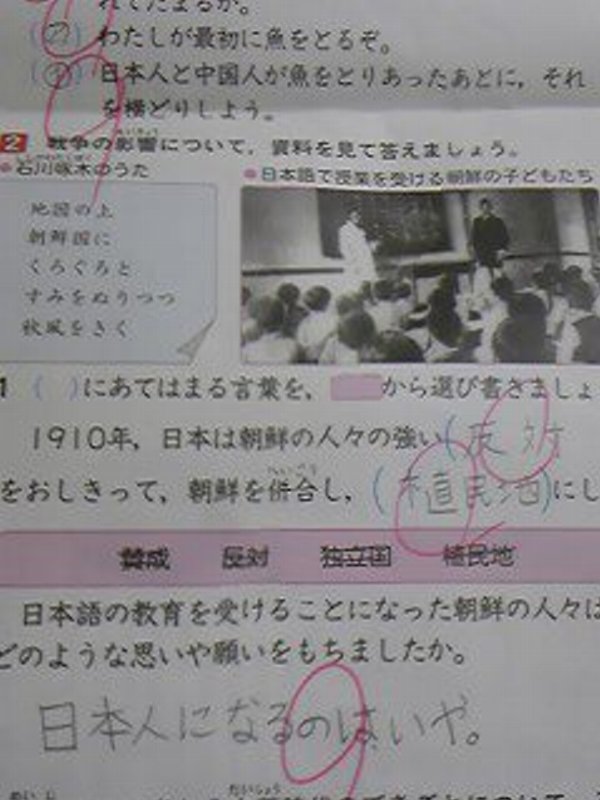 れてたまるか。
(ウ) わたしが最初に魚をとるぞ。
日本人と中国人が魚をとりあったあとに，それ
を横どりしよう。
2 戦争の影響について，資料を見て答えましょう。
●石川啄木のうた
地図の上
朝鮮国に
くろぐろと
すみをぬりつつ
秋風をきく
●日本語で授業を受ける朝鮮の子どもたち
1 ( )にあてはまる言葉を， から選び書きましょ
1910年，日本は朝鮮の人々の強い(反対
をおしきって，朝鮮を併合し，(植民地)にし
賛成 反対 独立国 植民地
日本語の教育を受けることになった朝鮮の人々は
どのような思いや願いをもちましたか。
日本人になるのはいや。